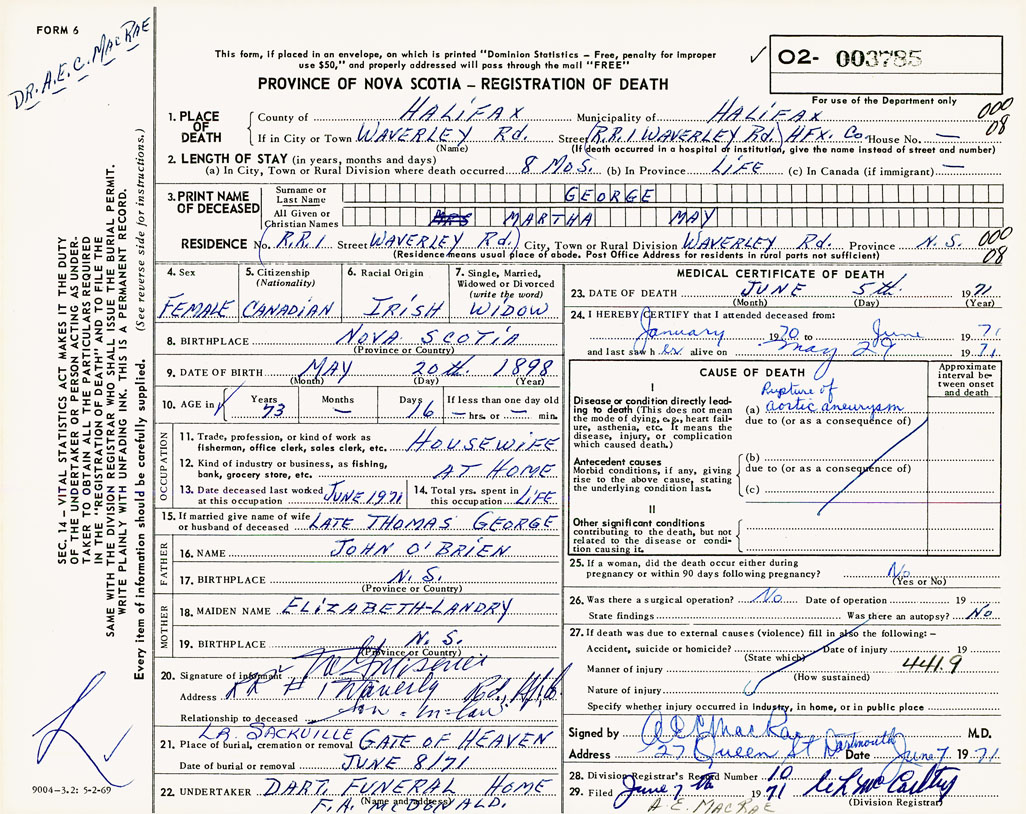 FORM 6
DR. A.E.C. MACRAE
This form, if placed in an envelope, on which is printed "Dominion Statistics – Free, penalty for improper
use $50," and properly addressed will pass through the mail "FREE"
✓ 02- 003785
PROVINCE OF NOVA SCOTIA – REGISTRATION OF DEATH
For use of the Department only
000
08
1. PLACE OF DEATH County of HALIFAX Municipality of HALIFAX
If in City or Town WAVERLEY Rd. Street (R.R.1 WAVERLEY Rd.) HFX. Co. House No. —
(Name) (If death occurred in a hospital of institution, give the name instead of street and number)
2. LENGTH OF STAY (in years, months and days)
(a) In City, Town or Rural Division where death occurred 8 MOS. (b) In Province LIFE (c) In Canada (if immigrant) —
3. PRINT NAME OF DECEASED
Surname or Last Name GEORGE
All Given or Christian Names MRS MARTHA MAY
RESIDENCE No. R.R.1 Street WAVERLEY Rd. City, Town or Rural Division WAVERLEY Rd. Province N.S. 000
08
(Residence means usual place of abode. Post Office Address for residents in rural parts not sufficient)
4. Sex FEMALE
5. Citizenship (Nationality) CANADIAN
6. Racial Origin IRISH
7. Single, Married, Widowed or Divorced (write the word) WIDOW
8. BIRTHPLACE NOVA SCOTIA
(Province or Country)
9. DATE OF BIRTH MAY 20th. 1898
(Month) (Day) (Year)
10. AGE in Years 73 Months — Days 16 If less than one day old — hrs. or — min.
OCCUPATION
11. Trade, profession, or kind of work as fisherman, office clerk, sales clerk, etc. HOUSEWIFE
12. Kind of industry or business, as fishing, bank, grocery store, etc. AT HOME
13. Date deceased last worked at this occupation JUNE 1971
14. Total yrs. spent in this occupation LIFE
15. If married give name of wife or husband of deceased LATE THOMAS GEORGE
FATHER
16. NAME JOHN O'BRIEN
17. BIRTHPLACE N.S.
(Province or Country)
MOTHER
18. MAIDEN NAME ELIZABETH-LANDRY
19. BIRTHPLACE N.S.
(Province or Country)
20. Signature of informant
Address RR # 1 Waverly Rd.
Relationship to deceased Son-in-law
LR. SACKVILLE
21. Place of burial, cremation or removal GATE OF HEAVEN
Date of burial or removal JUNE 8/71
22. UNDERTAKER DART. FUNERAL HOME
(Name and address)
F.A. McDONALD.
MEDICAL CERTIFICATE OF DEATH
23. DATE OF DEATH JUNE 5th. 1971
(Month) (Day) (Year)
24. I HEREBY CERTIFY that I attended deceased from:
January 1970 to June 1971
and last saw her alive on May 29 1971
CAUSE OF DEATH
Approximate interval between onset and death
I
Disease or condition directly leading to death (This does not mean the mode of dying, e.g., heart failure, asthenia, etc. It means the disease, injury, or complication which caused death.)
Rupture of
(a) aortic aneurysm
due to (or as a consequence of)
Antecedent causes
Morbid conditions, if any, giving rise to the above cause, stating the underlying condition last.
(b)
due to (or as a consequence of)
(c)
II
Other significant conditions contributing to the death, but not related to the disease or condition causing it.
25. If a woman, did the death occur either during pregnancy or within 90 days following pregnancy? No
(Yes or No)
26. Was there a surgical operation? No Date of operation 19
State findings Was there an autopsy? No
27. If death was due to external causes (violence) fill in also the following: –
Accident, suicide or homicide? Date of injury 19
(State which)
Manner of injury 441.9
(How sustained)
Nature of injury
Specify whether injury occurred in industry, in home, or in public place
Signed by A E C MacRae M.D.
Address 27 Queen St Dartmouth Date June 7 1971
28. Division Registrar's Record Number 10
29. Filed June 7th 1971
(Division Registrar)
A.E. MACRAE
SEC. 14 – VITAL STATISTICS ACT MAKES IT THE DUTY
OF THE UNDERTAKER OR PERSON ACTING AS UNDER-
TAKER TO OBTAIN ALL THE PARTICULARS REQUIRED
IN THE "REGISTRATION OF DEATH" AND TO FILE THE
SAME WITH THE DIVISION REGISTRAR WHO SHALL ISSUE THE BURIAL PERMIT.
WRITE PLAINLY WITH UNFADING INK. THIS IS A PERMANENT RECORD.
Every item of information should be carefully supplied. (See reverse side for instructions.)
9004-3.2: 5-2-69